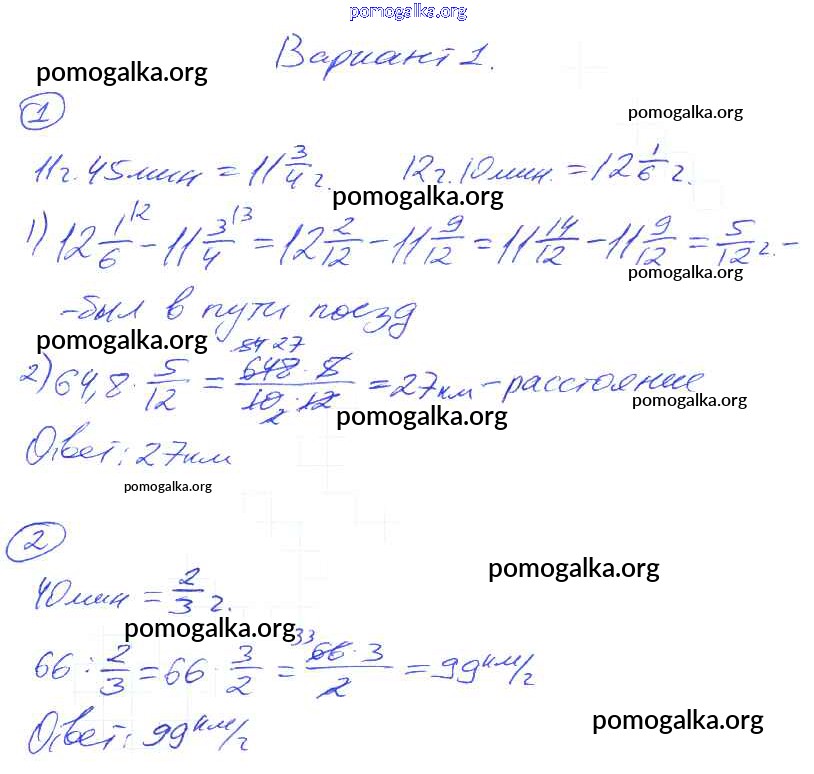 pomogalka.org
Вариант 1.
pomogalka.org
1
pomogalka.org
11 ч. 45 мин = 11 3/4 ч. 12 ч. 10 мин. = 12 1/6 ч.
pomogalka.org
1) 12 1/6 \2 - 11 3/4 \3 = 12 2/12 - 11 9/12 = 11 14/12 - 11 9/12 = 5/12 ч. -
pomogalka.org
- был в пути поезд
pomogalka.org
54 27
2) 64,8 · 5/12 = 648 · 5 / 10 · 12 = 27 км - расстояние
2 2
pomogalka.org
pomogalka.org
Ответ: 27 км
pomogalka.org
2
pomogalka.org
40 мин = 2/3 ч.
pomogalka.org
33
66 : 2/3 = 66 · 3/2 = 66 · 3 / 2 = 99 км/ч
pomogalka.org
Ответ: 99 км/ч